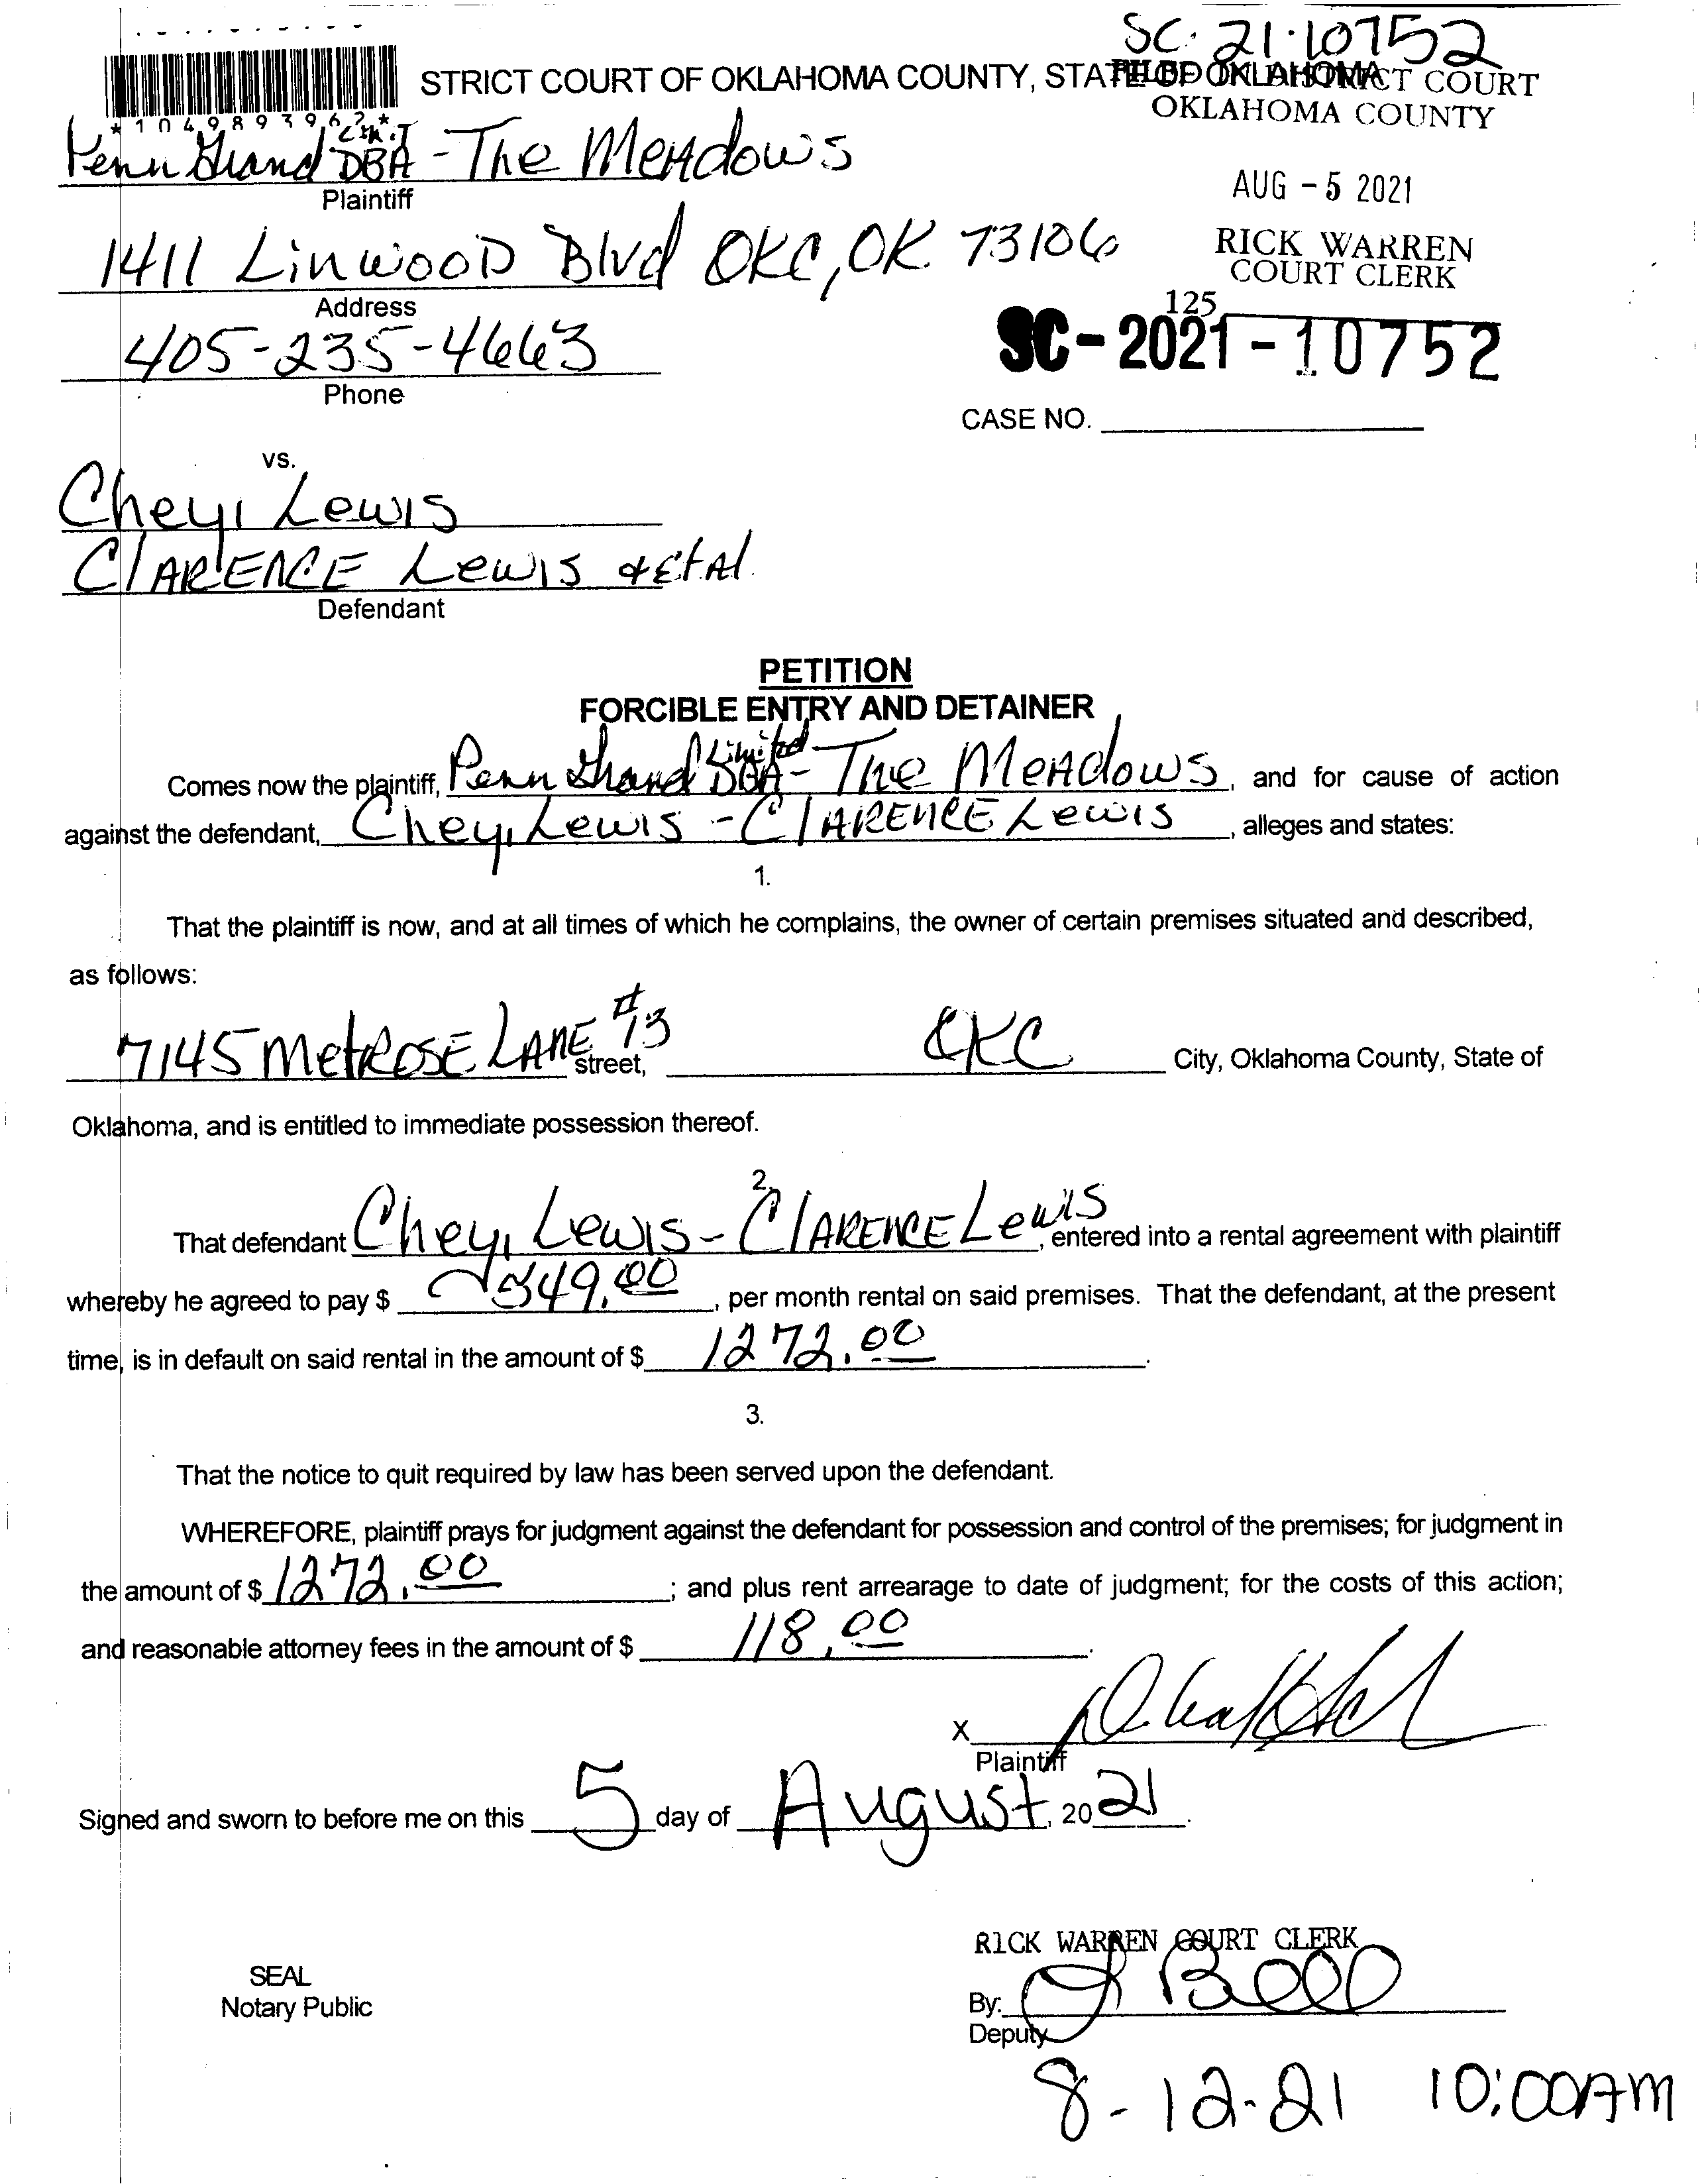 SC-21-10752
STRICT COURT OF OKLAHOMA COUNTY, STATE OF OKLAHOMA
FILED IN DISTRICT COURT
OKLAHOMA COUNTY
*1049893962*
Penn Grand DBA - The Meadows
Plaintiff
AUG - 5 2021
1411 Linwood Blvd OKC, OK 73106
RICK WARREN
COURT CLERK
Address
125
405-235-4663
SC-2021-10752
Phone
CASE NO.
vs.
Cheyi Lewis
Clarence Lewis & et Al
Defendant
PETITION
FORCIBLE ENTRY AND DETAINER
Comes now the plaintiff, Penn Grand Limited DBA - The Meadows, and for cause of action
against the defendant, Cheyi Lewis - Clarence Lewis, alleges and states:
1.
That the plaintiff is now, and at all times of which he complains, the owner of certain premises situated and described,
as follows:
7145 MetRose Lane #13 street, OKC City, Oklahoma County, State of
Oklahoma, and is entitled to immediate possession thereof.
2.
That defendant Cheyi Lewis - Clarence Lewis, entered into a rental agreement with plaintiff
whereby he agreed to pay $ 549.00, per month rental on said premises. That the defendant, at the present
time, is in default on said rental in the amount of $ 1272.00.
3.
That the notice to quit required by law has been served upon the defendant.
WHEREFORE, plaintiff prays for judgment against the defendant for possession and control of the premises; for judgment in
the amount of $ 1272.00; and plus rent arrearage to date of judgment; for the costs of this action;
and reasonable attorney fees in the amount of $ 118.00.
X
Plaintiff
Signed and sworn to before me on this 5 day of August, 2021.
RICK WARREN COURT CLERK
SEAL
Notary Public
By: J Bell
Deputy
8-12-21 10:00AM